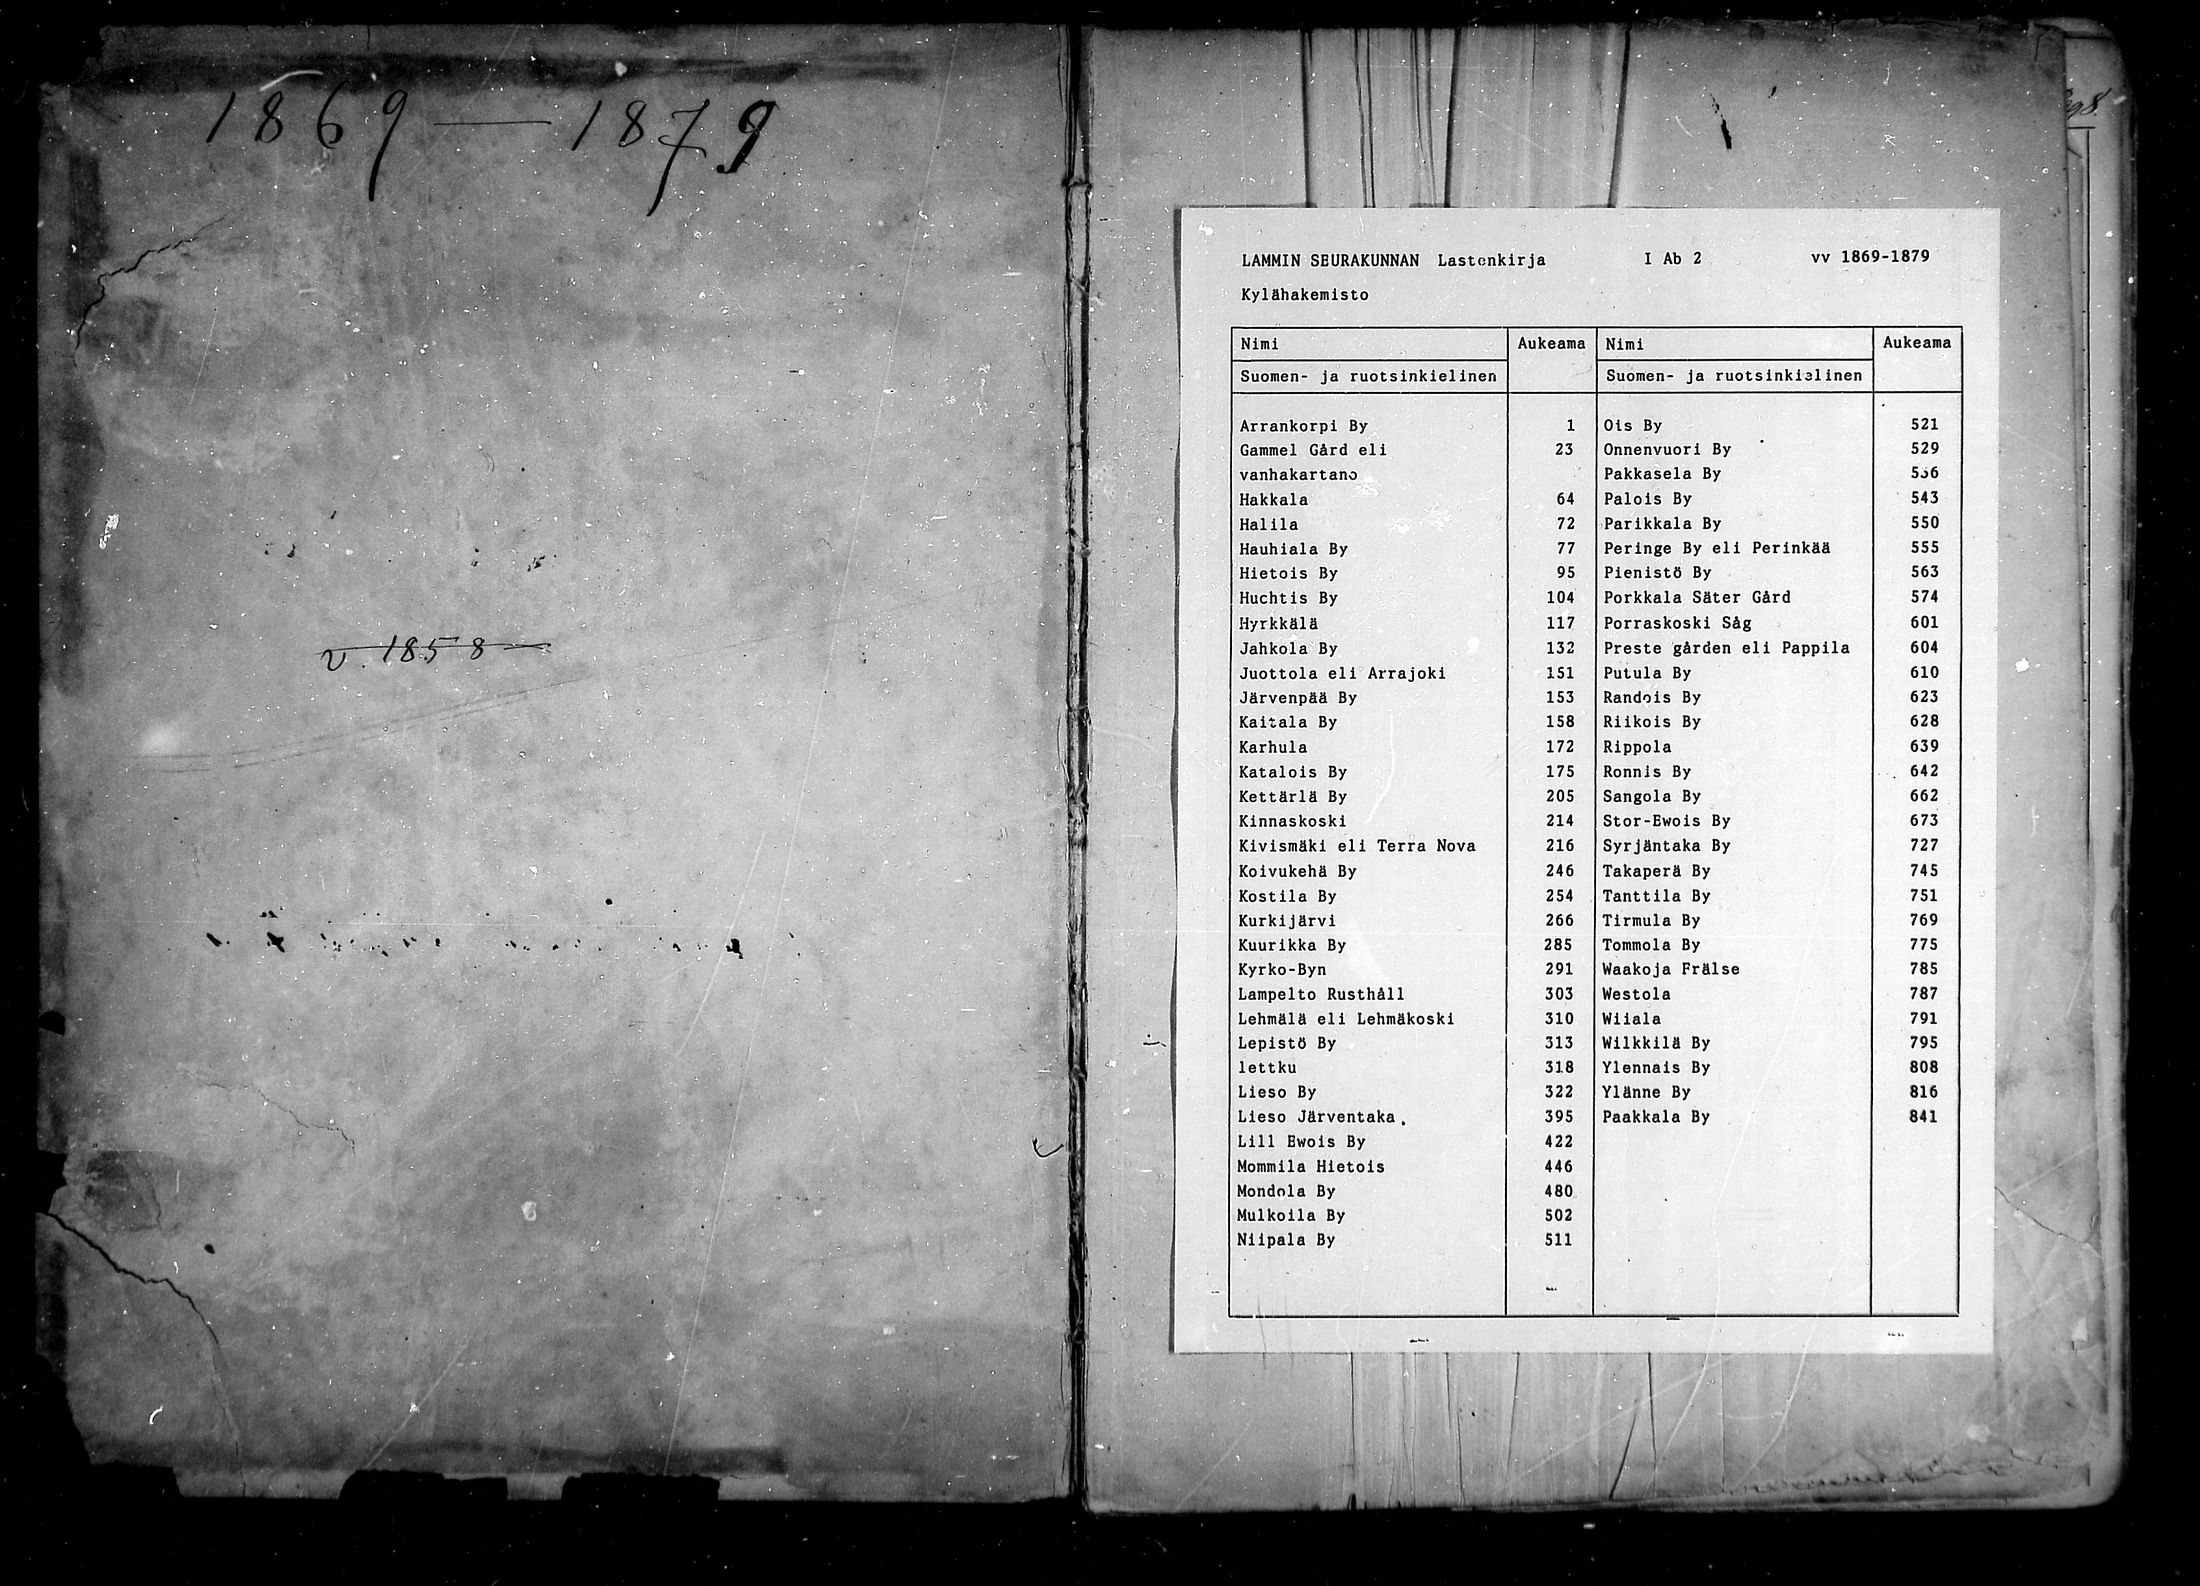 1869 — 1879
v. 1858
LAMMIN SEURAKUNNAN Lastenkirja I Ab 2 vv 1869-1879
Kylähakemisto
Nimi Aukeama Nimi Aukeama
Suomen- ja ruotsinkielinen Suomen- ja ruotsinkielinen
Arrankorpi By 1 Ois By 521
Gammel Gård eli 23 Onnenvuori By 529
vanhakartano Pakkasela By 536
Hakkala 64 Palois By 543
Halila 72 Parikkala By 550
Hauhiala By 77 Peringe By eli Perinkää 555
Hietois By 95 Pienistö By 563
Huchtis By 104 Porkkala Säter Gård 574
Hyrkkälä 117 Porraskoski Såg 601
Jahkola By 132 Preste gården eli Pappila 604
Juottola eli Arrajoki 151 Putula By 610
Järvenpää By 153 Randois By 623
Kaitala By 158 Riikois By 628
Karhula 172 Rippola 639
Katalois By 175 Ronnis By 642
Kettärlä By 205 Sangola By 662
Kinnaskoski 214 Stor-Ewois By 673
Kivismäki eli Terra Nova 216 Syrjäntaka By 727
Koivukehä By 246 Takaperä By 745
Kostila By 254 Tanttila By 751
Kurkijärvi 266 Tirmula By 769
Kuurikka By 285 Tommola By 775
Kyrko-Byn 291 Waakoja Frälse 785
Lampelto Rusthåll 303 Westola 787
Lehmälä eli Lehmäkoski 310 Wiiala 791
Lepistö By 313 Wilkkilä By 795
lettku 318 Ylennais By 808
Lieso By 322 Ylänne By 816
Lieso Järventaka. 395 Paakkala By 841
Lill Ewois By 422
Mommila Hietois 446
Mondola By 480
Mulkoila By 502
Niipala By 511